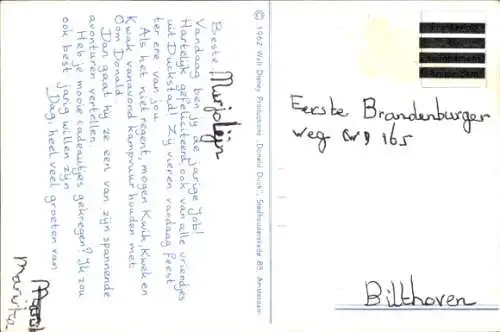 Beste, Marjolijn
Vandaag ben jij de jarige Job!
Hartelijk gefeliciteerd ook van alle vriendjes
uit Duckstad! Zij vieren vandaag feest
ter ere van jou.
Als het niet regent, mogen Kwik, Kwek en
Kwak vanavond kampvuur houden met
Oom Donald.
Dan gaat hij ze een van zijn spannende
avonturen vertellen.
Heb je mooie cadeautjes gekregen? Ik zou
ook best jarig willen zijn
Dag, heel veel groeten van
© 1962 Walt Disney Productions „Donald Duck”, Stadhouderskade 85, Amsterdam
Eerste Brandenburger
weg 165
Bilthoven